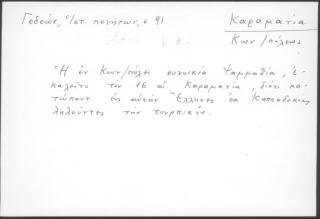 Γεδεών, Ἑ/ορτ. πενήτων, σ 91
Καραμανία
Κων/πόλεως
Ἡ ἐν Κων/πόλει συνοικία Ψαμμαθία, ἐ-
καλεῖτο τον 16 αἰ. Καραμανία, διότι κα-
τῴκουν εἰς αὐτὴν Ἕλληνες ἐκ Καππαδοκίας
λαλοῦντες τὴν τουρκικήν.